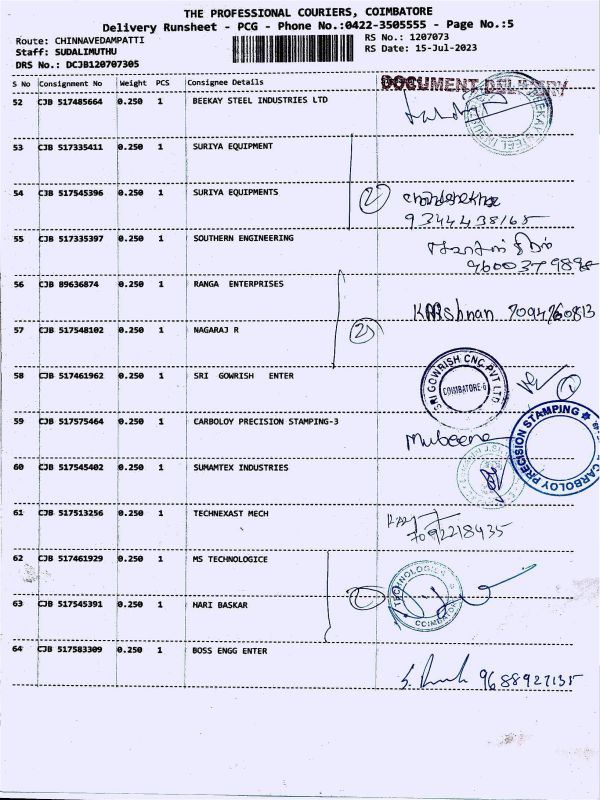 THE PROFESSIONAL COURIERS, COIMBATORE
Delivery Runsheet - PCG - Phone No.:0422-3505555 - Page No.:5
Route: CHINNAVEDAMPATTI RS No.: 1207073
Staff: SUDALIMUTHU RS Date: 15-Jul-2023
DRS No.: DCJB120707305
S No Consignment No Weight PCS Consignee Details
DOCUMENT DELIVERY
52 CJB 517485664 0.250 1 BEEKAY STEEL INDUSTRIES LTD
53 CJB 517335411 0.250 1 SURIYA EQUIPMENT
54 CJB 517545396 0.250 1 SURIYA EQUIPMENTS 2
9344438165
55 CJB 517335397 0.250 1 SOUTHERN ENGINEERING
9600379898
56 CJB 89636874 0.250 1 RANGA ENTERPRISES
Krishnan 7094760813
57 CJB 517548102 0.250 1 NAGARAJ R 2
58 CJB 517461962 0.250 1 SRI GOWRISH ENTER
SRI GOWRISH CNC PVT LTD
COIMBATORE-6
1
59 CJB 517575464 0.250 1 CARBOLOY PRECISION STAMPING-3
Mubeena
CARBOLOY PRECISION STAMPING
60 CJB 517545402 0.250 1 SUMAMTEX INDUSTRIES
61 CJB 517513256 0.250 1 TECHNEXAST MECH
7092218435
62 CJB 517461929 0.250 1 MS TECHNOLOGICE
TECHNOLOGIES
COIMBATORE
63 CJB 517545391 0.250 1 HARI BASKAR
64 CJB 517583309 0.250 1 BOSS ENGG ENTER
9688927135